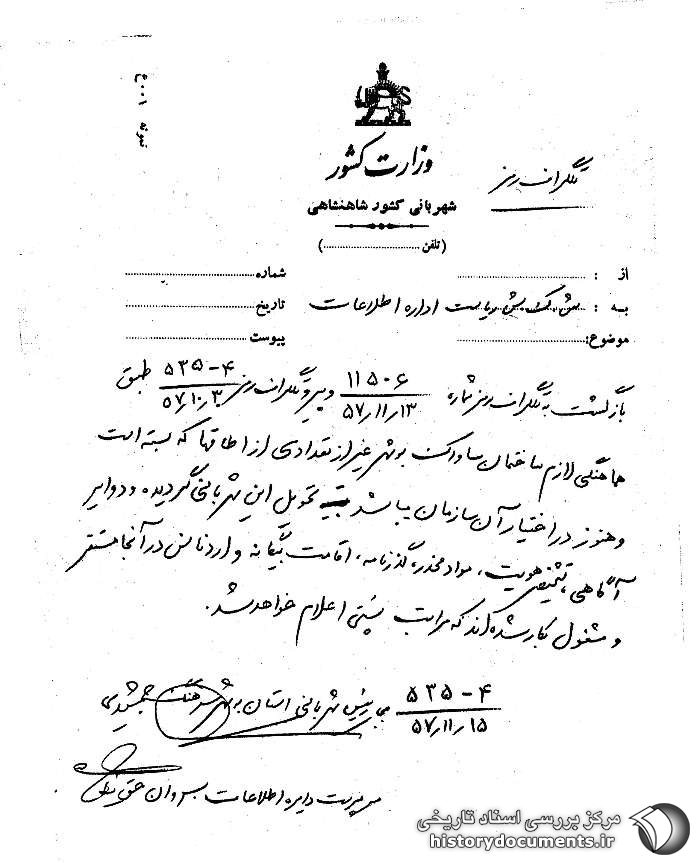 نمونه ۴۰۰۱
وزارت کشور
شهربانی کشور شاهنشاهی
تلگراف رمز
(تلفن ..............................)
از :
شماره
به : ش ک ش ریاست اداره اطلاعات
تاریخ
موضوع:
پیوست
بازگشت به تلگراف رمز شماره ۱۱۵۰۶ ۵۷/۱۱/۱۳ و پیرو تلگراف رمز ۵۳۵-۴ ۵۷/۱۰/۳۰ طبق
هماهنگی لازم ساختمان ساواک بوشهر غیر از تعدادی از اطاقها که بسته است
و هنوز در اختیار آن سازمان میباشد بقیه تحویل این شهربانی گردیده و دوایر
آگاهی، تشخیص هویت، مواد مخدره، گذرنامه، اقامت بیگانه و اردنانس در آنجا مستقر
و مشغول بکار شده‌اند که مراتب پستی اعلام خواهد شد.
۵۳۵-۴ ۵۷/۱۱/۱۵ رئیس شهربانی استان بوشهر سرهنگ جمشیدی
سرپرست دایره اطلاعات ستوان
مرکز بررسی اسناد تاریخی
historydocuments.ir